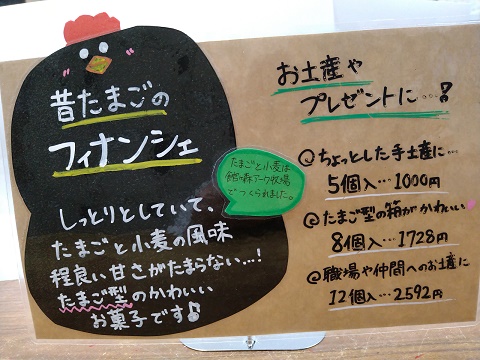 昔たまごの
フィナンシェ
しっとりとしていて、
たまごと小麦の風味
程良い甘さがたまらない…!
たまご型のかわいい
お菓子です♪
たまごと小麦は
館ヶ森アーク牧場
でつくられました。
お土産や
プレゼントに…!
@ちょっとした手土産に…
5個入…1000円
@たまご型の箱がかわいい
8個入…1728円
@職場や仲間へのお土産に
12個入…2592円